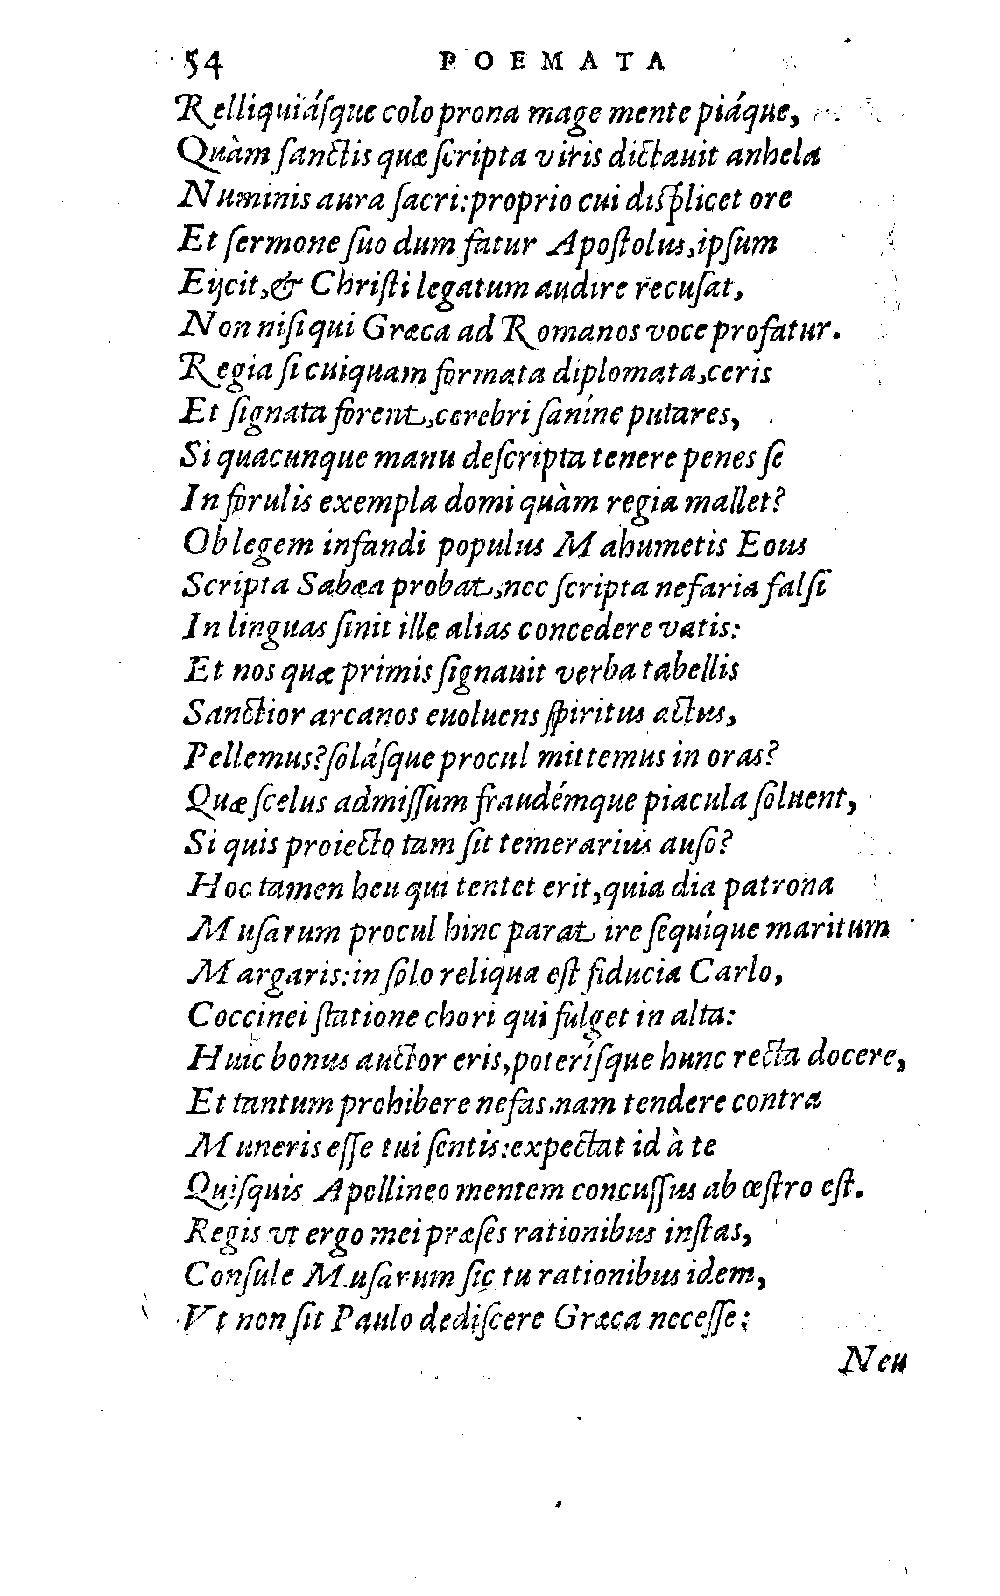 54 POEMATA
Relliquiáſque colo prona mage mente piáque,
Quàm ſanctis quæ ſcripta viris dictauit anhela
Numinis aura ſacri: proprio cui diſplicet ore
Et ſermone ſuo dum fatur Apoſtolus, ipſum
Eijcit, & Chriſti legatum audire recuſat,
Non niſi qui Græca ad Romanos voce profatur.
Regia ſi cuiquam formata diplomata, ceris
Et ſignata forent, cerebri ſaníne putares,
Si quacunque manu deſcripta tenere penes ſe
In forulis exempla domi quàm regia mallet?
Ob legem infandi populus Mahumetis Eous
Scripta Sabæa probat, nec ſcripta nefaria falſi
In linguas ſinit ille alias concedere vatis:
Et nos quæ primis ſignauit verba tabellis
Sanctior arcanos euoluens ſpiritus actus,
Pellemus? ſoláſque procul mittemus in oras?
Quæ ſcelus admiſſum fraudémque piacula ſoluent,
Si quis proiecto tam ſit temerarius auſo?
Hoc tamen heu qui tentet erit, quia dia patrona
Muſarum procul hinc parat ire ſequíque maritum
Margaris: in ſolo reliqua eſt fiducia Carlo,
Coccinei ſtatione chori qui fulget in alta:
Huic bonus auctor eris, poteríſque hunc recta docere,
Et tantum prohibere nefas. nam tendere contra
Muneris eſſe tui ſentis: expectat id à te
Quiſquis Apollineo mentem concuſſus ab œſtro eſt.
Regis vt ergo mei præſes rationibus inſtas,
Conſule Muſarum ſic tu rationibus idem,
Vt non ſit Paulo dediſcere Græca neceſſe:
Neu